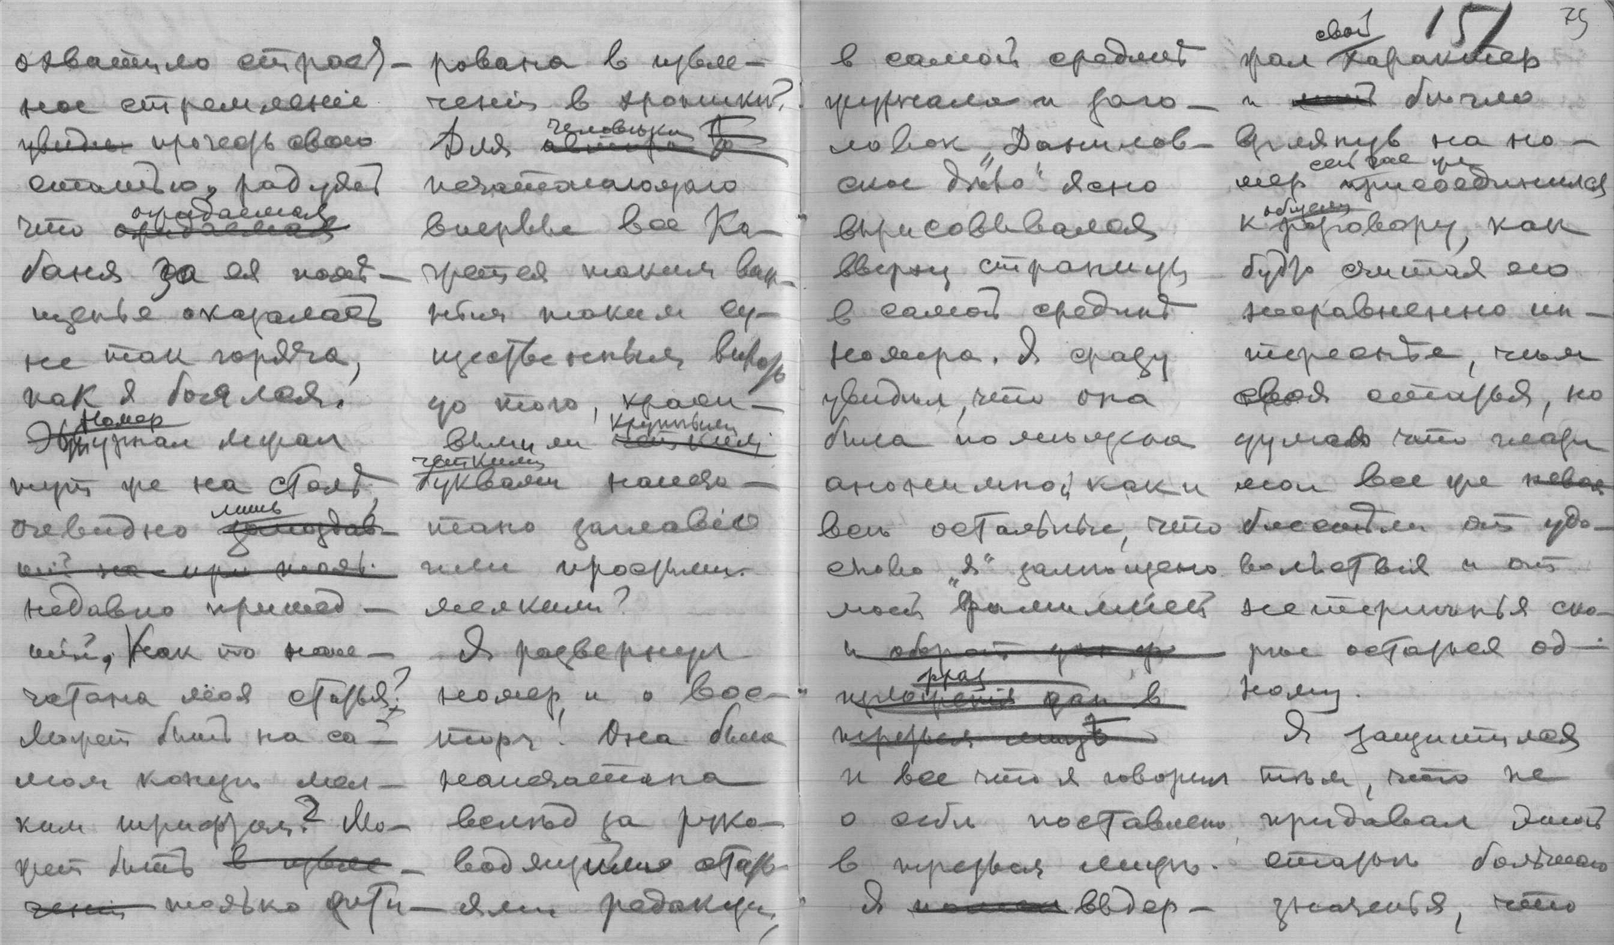 151
75
охватило страст-
ное стремленіе
увидѣть прочесть свою
статью, радуясь
что ожидаемая
баня за ея
оказалась
не так горяча,
как я боялся.
Номер
журнал лежал
тут же на столѣ,
очевидно лишь
недавно пришед-
шій. Как то напе-
чатана моя статья?
Может быть на са-
мом концѣ мел-
ким шрифтом? Мо-
жет быть в извле-
ченіи только цити-
рована в извле-
ченіи в хроникѣ?
Для человѣка
печатающаго
впервые все ка-
жется таким важ-
ным таким су-
щественным вплоть
до того, краси-
выми ли крупными
четкими
буквами напеча-
тано заглавіе
или простыми
мелкими?
Я развернул
номер, и о вос-
торг! Она была
напечатана
вслѣд за руко-
водящими стать-
ями редакціи,
в самой срединѣ
журнала и заго-
ловок „Данилов-
ское дѣло“ ясно
вырисовывался
вверху страницы
в самой срединѣ
номера. Я сразу
увидѣл, что она
была помѣщена
анонимной как и
всѣ остальные, что
слово „я“ замѣщено
моей фамиліей
и все что я говорил
о себѣ поставлено
в третьем лицѣ.
Я выдер-
жал свой характер
и бѣгло
взглянув на но-
мер сейчас же присоединился
к общему разговору, как
будто считая его
несравненно ин-
тереснѣе, чѣм
своя статья, но
думаю что глаза
мои все же
блестѣли от удо-
вольствія и от
нетерпѣнья ско-
рѣе остаться од-
ному.
Я защитился
тѣм, что не
придавал этой
статьѣ большого
значенья, что